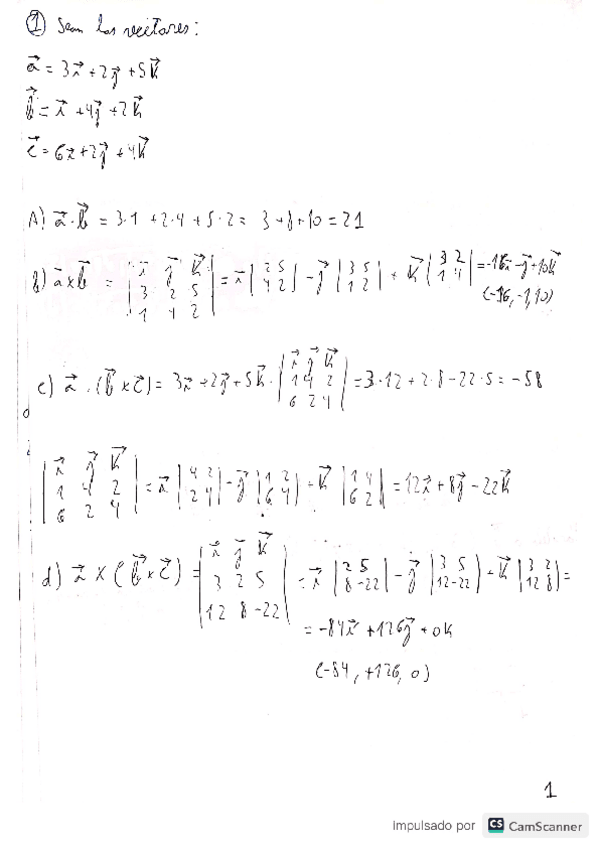 ① Sean los vectores:
a⃗ = 3i⃗ + 2j⃗ + 5k⃗
b⃗ = i⃗ + 4j⃗ + 2k⃗
c⃗ = 6i⃗ + 2j⃗ + 4k⃗
A) a⃗ · b⃗ = 3·1 + 2·4 + 5·2 = 3 + 8 + 10 = 21
b) a⃗ x b⃗ = |i⃗ j⃗ k⃗; 3 2 5; 1 4 2| = i⃗ |2 5; 4 2| - j⃗ |3 5; 1 2| + k⃗ |3 2; 1 4| = -16i⃗ - j⃗ + 10k⃗
(-16, -1, 10)
c) a⃗ · (b⃗ x c⃗) = 3i⃗ + 2j⃗ + 5k⃗ · |i⃗ j⃗ k⃗; 1 4 2; 6 2 4| = 3·12 + 2·8 - 22·5 = -58
|i⃗ j⃗ k⃗; 1 4 2; 6 2 4| = i⃗ |4 2; 2 4| - j⃗ |1 2; 6 4| + k⃗ |1 4; 6 2| = 12i⃗ + 8j⃗ - 22k⃗
d) a⃗ x (b⃗ x c⃗) = |i⃗ j⃗ k⃗; 3 2 5; 12 8 -22| = i⃗ |2 5; 8 -22| - j⃗ |3 5; 12 -22| + k⃗ |3 2; 12 8| =
= -84i⃗ + 126j⃗ + 0k
(-84, +126, 0)
1
Impulsado por CS CamScanner